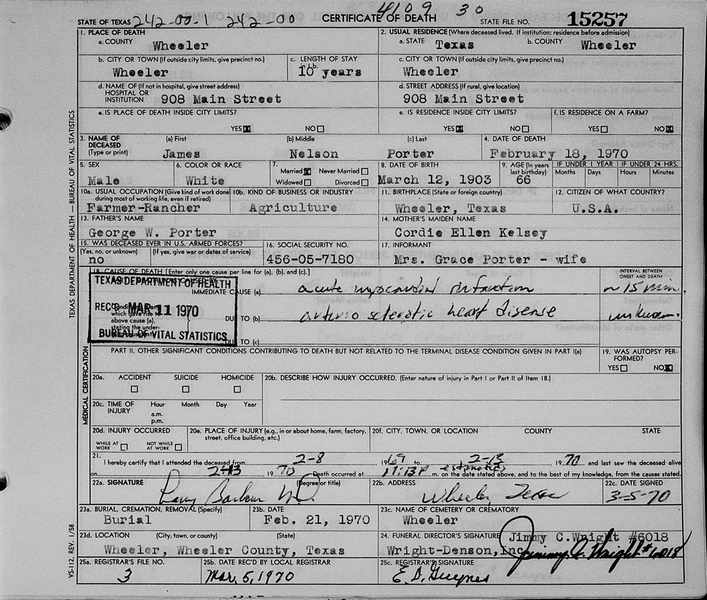 4109 30
STATE OF TEXAS 242-00-1 242-00 CERTIFICATE OF DEATH STATE FILE NO. 15257
1. PLACE OF DEATH 2. USUAL RESIDENCE (Where deceased lived. If institution: residence before admission)
a. COUNTY Wheeler a. STATE Texas b. COUNTY Wheeler
b. CITY OR TOWN (If outside city limits, give precinct no.) c. LENGTH OF STAY c. CITY OR TOWN (If outside city limits, give precinct no.)
Wheeler 10 years Wheeler
d. NAME OF (If not in hospital, give street address) d. STREET ADDRESS (If rural, give location)
HOSPITAL OR
INSTITUTION 908 Main Street 908 Main Street
e. IS PLACE OF DEATH INSIDE CITY LIMITS? e. IS RESIDENCE INSIDE CITY LIMITS? f. IS RESIDENCE ON A FARM?
YES NO YES NO YES NO
3. NAME OF DECEASED (a) First (b) Middle (c) Last 4. DATE OF DEATH
(Type or print) James Nelson Porter February 18, 1970
5. SEX 6. COLOR OR RACE 7. Married Never Married 8. DATE OF BIRTH 9. AGE (In years last birthday) IF UNDER 1 YEAR IF UNDER 24 HRS.
Months Days Hours Minutes
Male White Widowed Divorced March 12, 1903 66
10a. USUAL OCCUPATION (Give kind of work done during most of working life, even if retired) 10b. KIND OF BUSINESS OR INDUSTRY 11. BIRTHPLACE (State or foreign country) 12. CITIZEN OF WHAT COUNTRY?
Farmer-Rancher Agriculture Wheeler, Texas U.S.A.
13. FATHER'S NAME 14. MOTHER'S MAIDEN NAME
George W. Porter Cordie Ellen Kelsey
15. WAS DECEASED EVER IN U.S. ARMED FORCES? 16. SOCIAL SECURITY NO. 17. INFORMANT
(If yes, give war or dates of service)
no 456-05-7180 Mrs. Grace Porter - wife
18. CAUSE OF DEATH [Enter only one cause per line for (a), (b), and (c).] INTERVAL BETWEEN ONSET AND DEATH
TEXAS DEPARTMENT OF HEALTH
IMMEDIATE CAUSE (a) acute myocardial infarction ~15 min.
REC'D MAR 11 1970
DUE TO (b) arterio sclerotic heart disease unknown
BUREAU OF VITAL STATISTICS
DUE TO (c)
PART II. OTHER SIGNIFICANT CONDITIONS CONTRIBUTING TO DEATH BUT NOT RELATED TO THE TERMINAL DISEASE CONDITION GIVEN IN PART I(a) 19. WAS AUTOPSY PERFORMED?
YES NO
20a. ACCIDENT SUICIDE HOMICIDE 20b. DESCRIBE HOW INJURY OCCURRED. (Enter nature of injury in Part I or Part II of Item 18.)
20c. TIME OF INJURY Hour Month Day Year
a.m.
p.m.
20d. INJURY OCCURRED 20e. PLACE OF INJURY (e.g., in or about home, farm, factory, street, office building, etc.) 20f. CITY, TOWN, OR LOCATION COUNTY STATE
WHILE AT WORK NOT WHILE AT WORK
21. I hereby certify that I attended the deceased from 2-8 1969 to 2-13 1970 and last saw the deceased alive
on 2-13 1970 Death occurred at 11:13P m. on the date stated above, and to the best of my knowledge, from the causes stated.
22a. SIGNATURE (Degree or title) 22b. ADDRESS 22c. DATE SIGNED
Wheeler Texas 3-5-70
23a. BURIAL, CREMATION, REMOVAL (Specify) 23b. DATE 23c. NAME OF CEMETERY OR CREMATORY
Burial Feb. 21, 1970 Wheeler
23d. LOCATION (City, town, or county) (State) 24. FUNERAL DIRECTOR'S SIGNATURE Jimmy C. Wright #6018
Wheeler, Wheeler County, Texas Wright-Denson, Inc. Jimmy C. Wright #6018
25a. REGISTRAR'S FILE NO. 25b. DATE REC'D BY LOCAL REGISTRAR 25c. REGISTRAR'S SIGNATURE
3 Mar. 5, 1970
TEXAS DEPARTMENT OF HEALTH — BUREAU OF VITAL STATISTICS
MEDICAL CERTIFICATION
VS-112 REV. 1/58